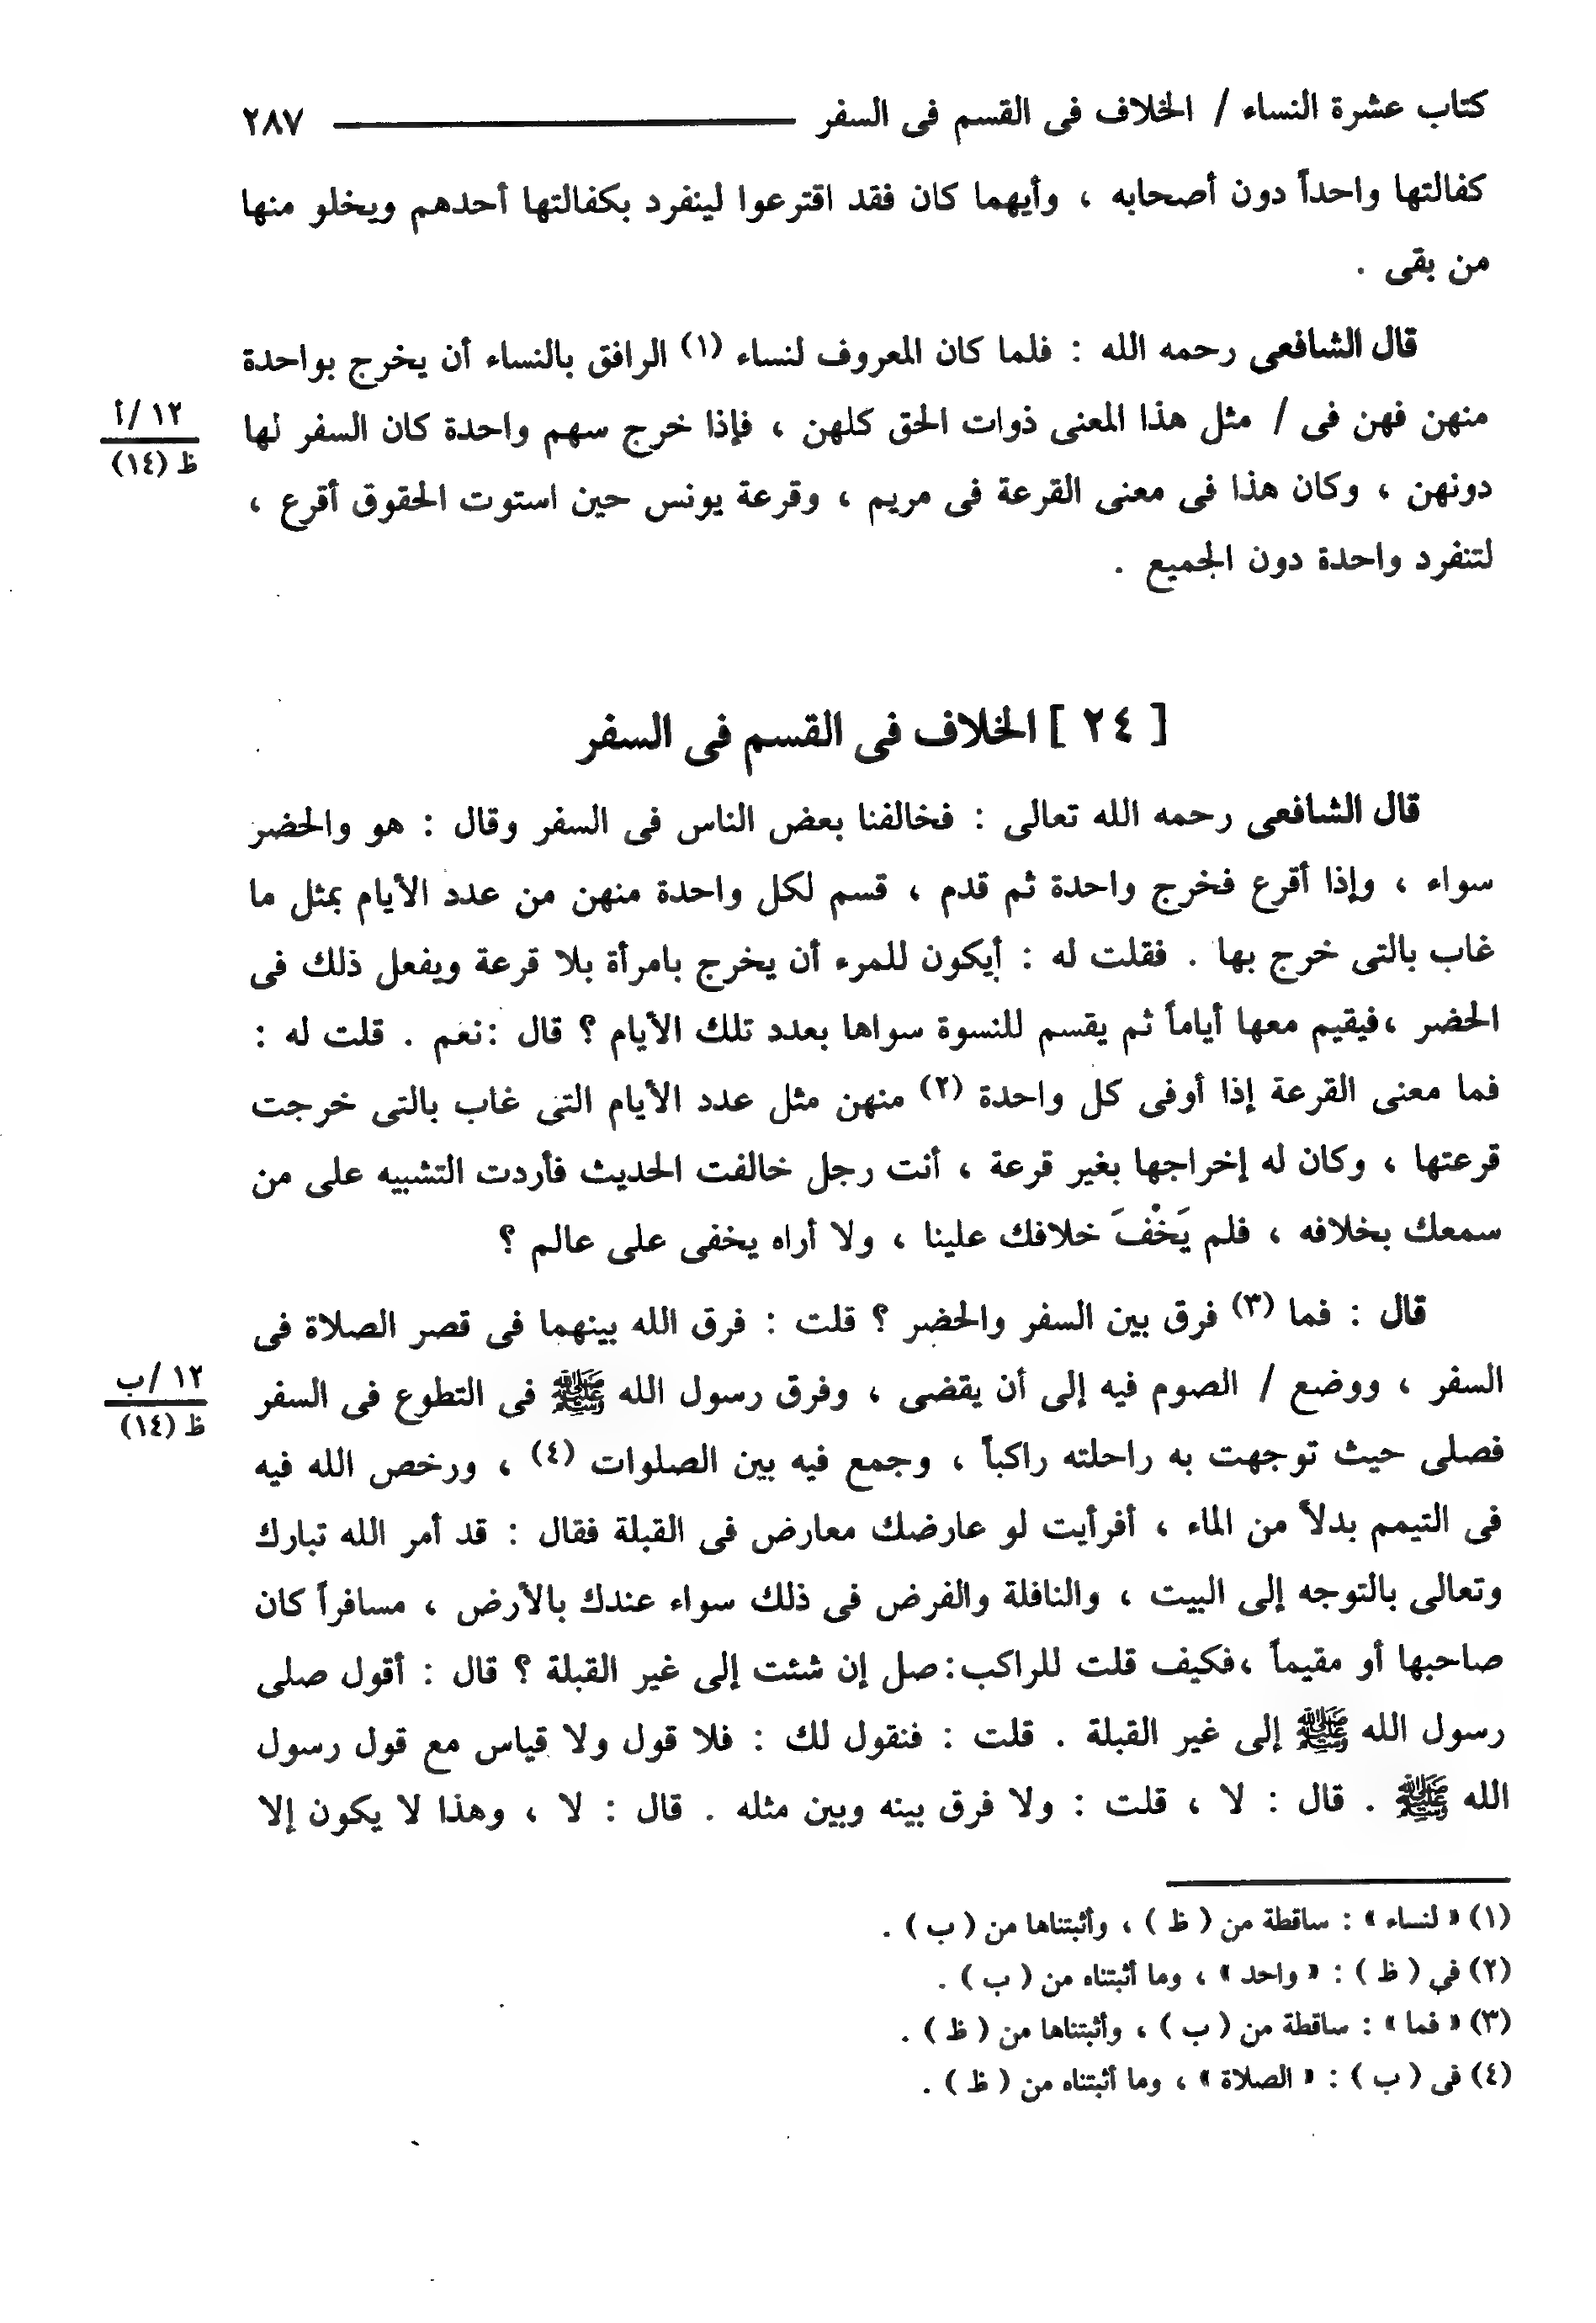 كتاب عشرة النساء / الخلاف فى القسم فى السفر ٢٨٧
كفالتها واحداً دون أصحابه ، وأيهما كان فقد اقترعوا لينفرد بكفالتها أحدهم ويخلو منها
من بقى .
قال الشافعى رحمه الله : فلما كان المعروف لنساء (١) الرافق بالنساء أن يخرج بواحدة
منهن فهن فى / مثل هذا المعنى ذوات الحق كلهن ، فإذا خرج سهم واحدة كان السفر لها
١٢ /أ
ظ (١٤)
دونهن ، وكان هذا فى معنى القرعة فى مريم ، وقرعة يونس حين استوت الحقوق أقرع ،
لتنفرد واحدة دون الجميع .
[ ٢٤ ] الخلاف فى القسم فى السفر
قال الشافعى رحمه الله تعالى : فخالفنا بعض الناس فى السفر وقال : هو والحضر
سواء ، وإذا أقرع فخرج واحدة ثم قدم ، قسم لكل واحدة منهن من عدد الأيام بمثل ما
غاب بالتى خرج بها . فقلت له : أيكون للمرء أن يخرج بامرأة بلا قرعة ويفعل ذلك فى
الحضر ،فيقيم معها أياماً ثم يقسم للنسوة سواها بعدد تلك الأيام ؟ قال :نعم . قلت له :
فما معنى القرعة إذا أوفى كل واحدة (٢) منهن مثل عدد الأيام التى غاب بالتى خرجت
قرعتها ، وكان له إخراجها بغير قرعة ، أنت رجل خالفت الحديث فأردت التشبيه على من
سمعك بخلافه ، فلم يَخْفَ خلافك علينا ، ولا أراه يخفى على عالم ؟
قال : فما (٣) فرق بين السفر والحضر ؟ قلت : فرق الله بينهما فى قصر الصلاة فى
السفر ، ووضع / الصوم فيه إلى أن يقضى ، وفرق رسول الله ﷺ فى التطوع فى السفر
١٢ /ب
ظ (١٤)
فصلى حيث توجهت به راحلته راكباً ، وجمع فيه بين الصلوات (٤) ، ورخص الله فيه
فى التيمم بدلاً من الماء ، أفرأيت لو عارضك معارض فى القبلة فقال : قد أمر الله تبارك
وتعالى بالتوجه إلى البيت ، والنافلة والفرض فى ذلك سواء عندك بالأرض ، مسافراً كان
صاحبها أو مقيماً ،فكيف قلت للراكب:صل إن شئت إلى غير القبلة ؟ قال : أقول صلى
رسول الله ﷺ إلى غير القبلة . قلت : فنقول لك : فلا قول ولا قياس مع قول رسول
الله ﷺ . قال : لا ، قلت : ولا فرق بينه وبين مثله . قال : لا ، وهذا لا يكون إلا
(١) « لنساء » : ساقطة من ( ظ ) ، وأثبتناها من ( ب ) .
(٢) في ( ظ ) : « واحد » ، وما أثبتناه من ( ب ) .
(٣) « فما » : ساقطة من ( ب ) ، وأثبتناها من ( ظ ) .
(٤) فى ( ب ) : « الصلاة » ، وما أثبتناه من ( ظ ) .